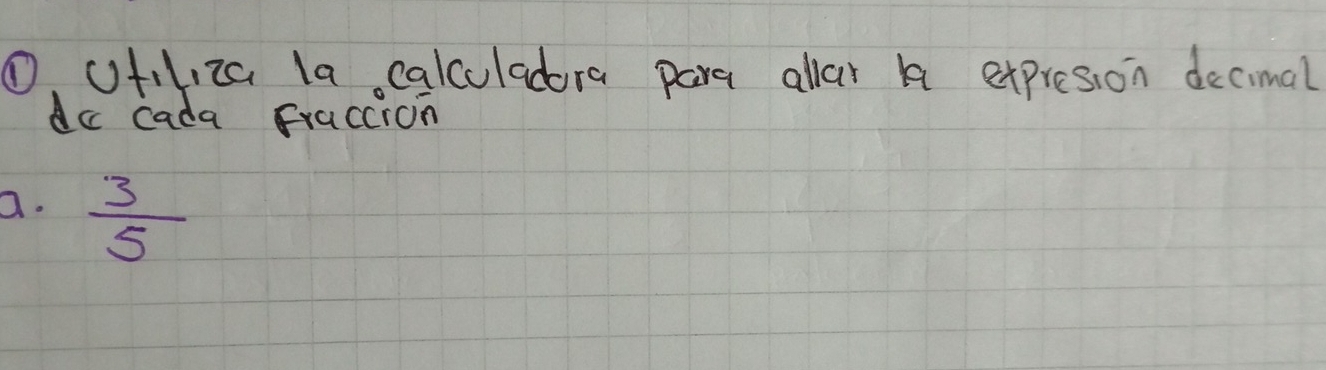 ① Utiliza la calculadora para allar la expresión decimal
de cada Fracción
a. 3/5